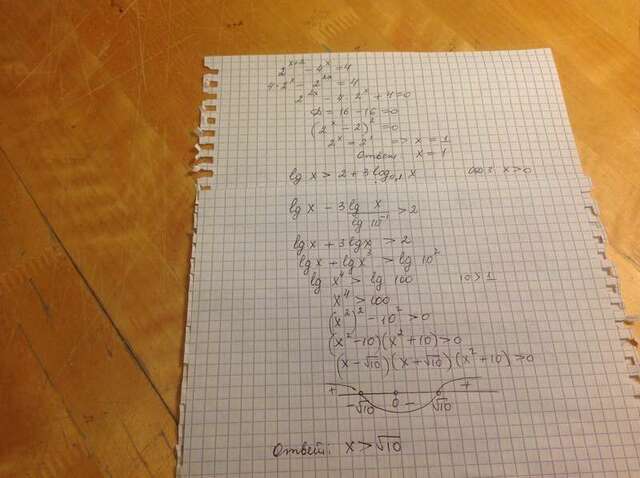 2^(x+2) - 4^x = 4
4·2^x - 2^(2x) = 4
2^(2x) - 4·2^x + 4 = 0
D = 16 - 16 = 0
(2^x - 2)^2 = 0
2^x = 2^1 => x = 1
Ответ: x = 1
lg x > 2 + 3 log_0,1 x x > 0
lg x - 3 lg x / lg 10^-1 > 2
lg x + 3 lg x > 2
lg x + lg x^3 > lg 10^2
lg x^4 > lg 100 10 > 1
x^4 > 100
(x^2)^2 - 10^2 > 0
(x^2 - 10)(x^2 + 10) > 0
(x - √10)(x + √10)(x^2 + 10) > 0
+ - +
-√10 0 √10
Ответ: x > √10